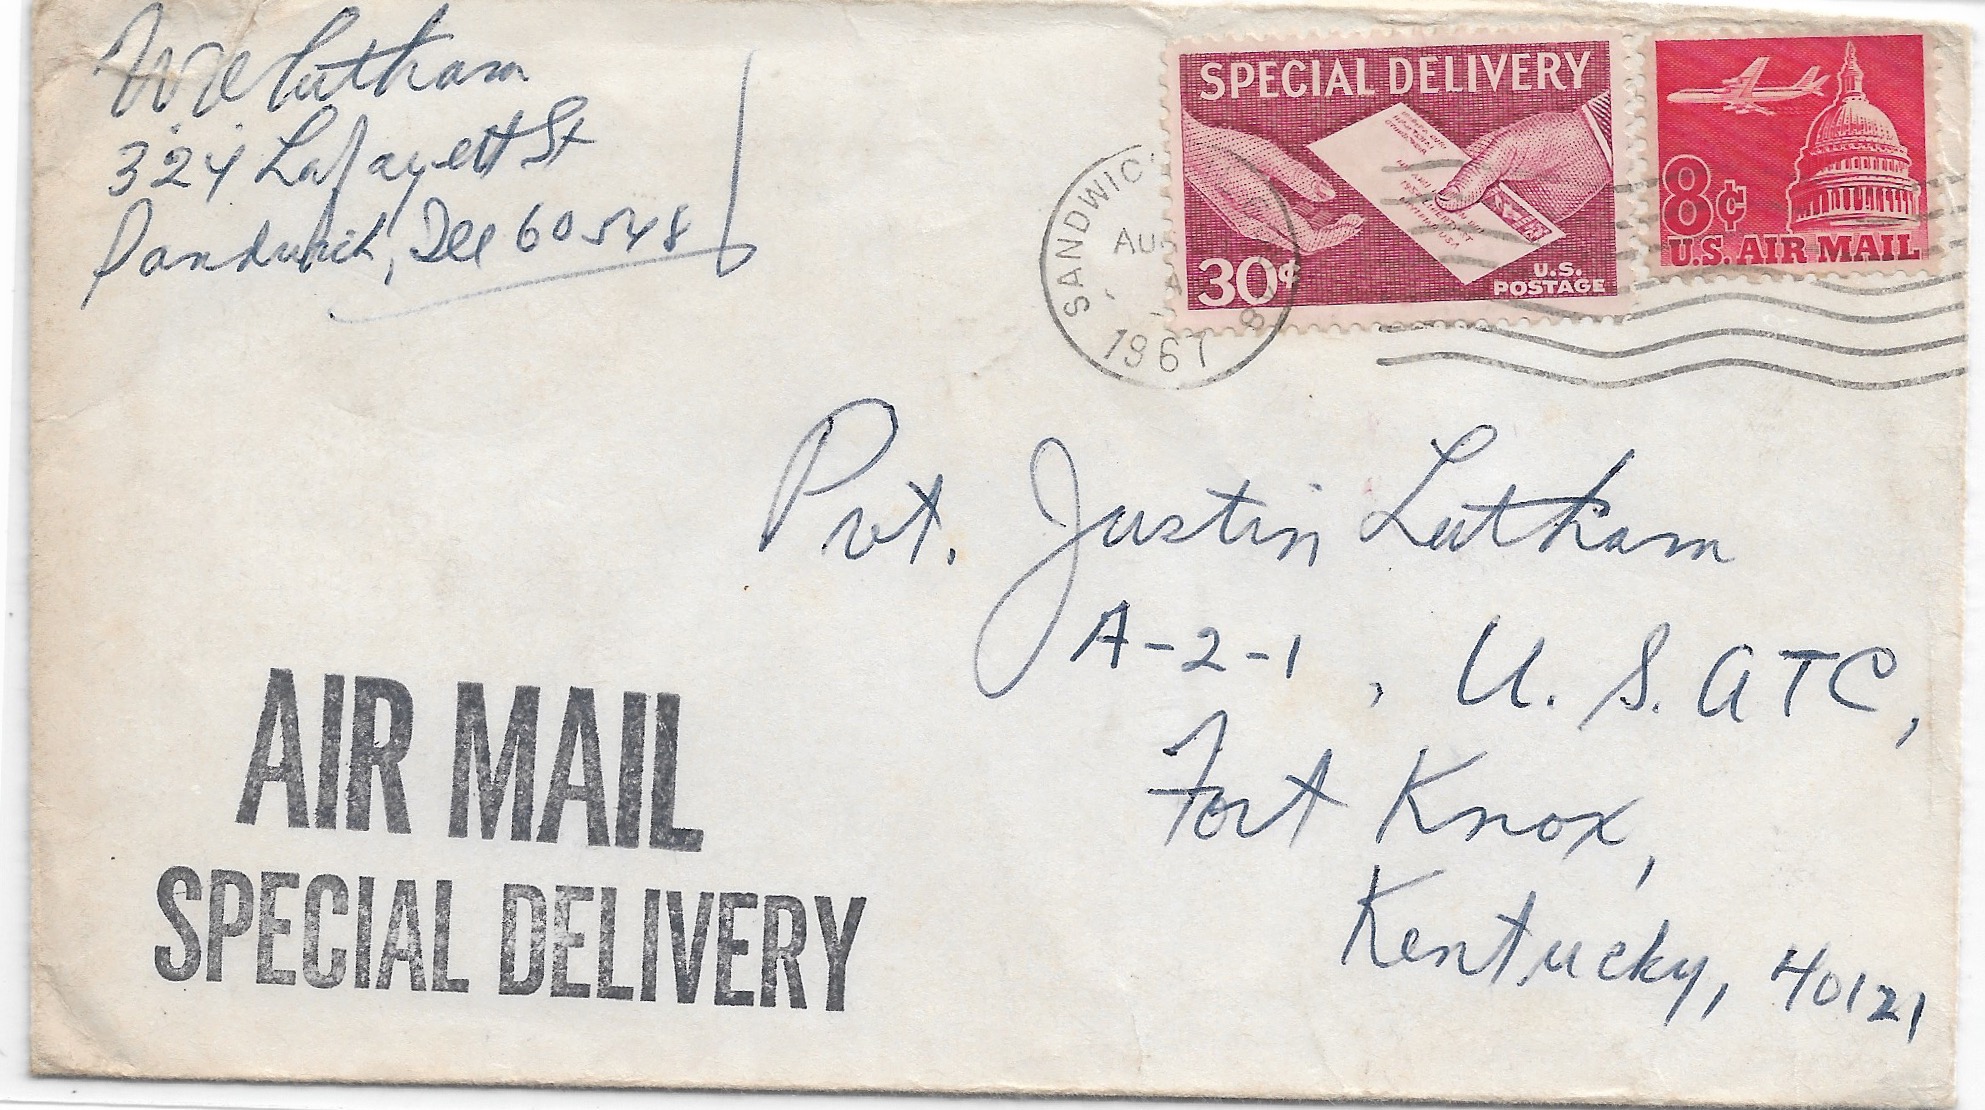 W E Lutham
324 Lafayett St
Sandwich, Ill 60548
SPECIAL DELIVERY
30¢
U.S.
POSTAGE
8¢
U.S. AIR MAIL
SANDWIC
AUG
A
1967
Pvt. Justin Lutham
A-2-1, U.S. ATC,
Fort Knox,
Kentucky, 40121
AIR MAIL
SPECIAL DELIVERY